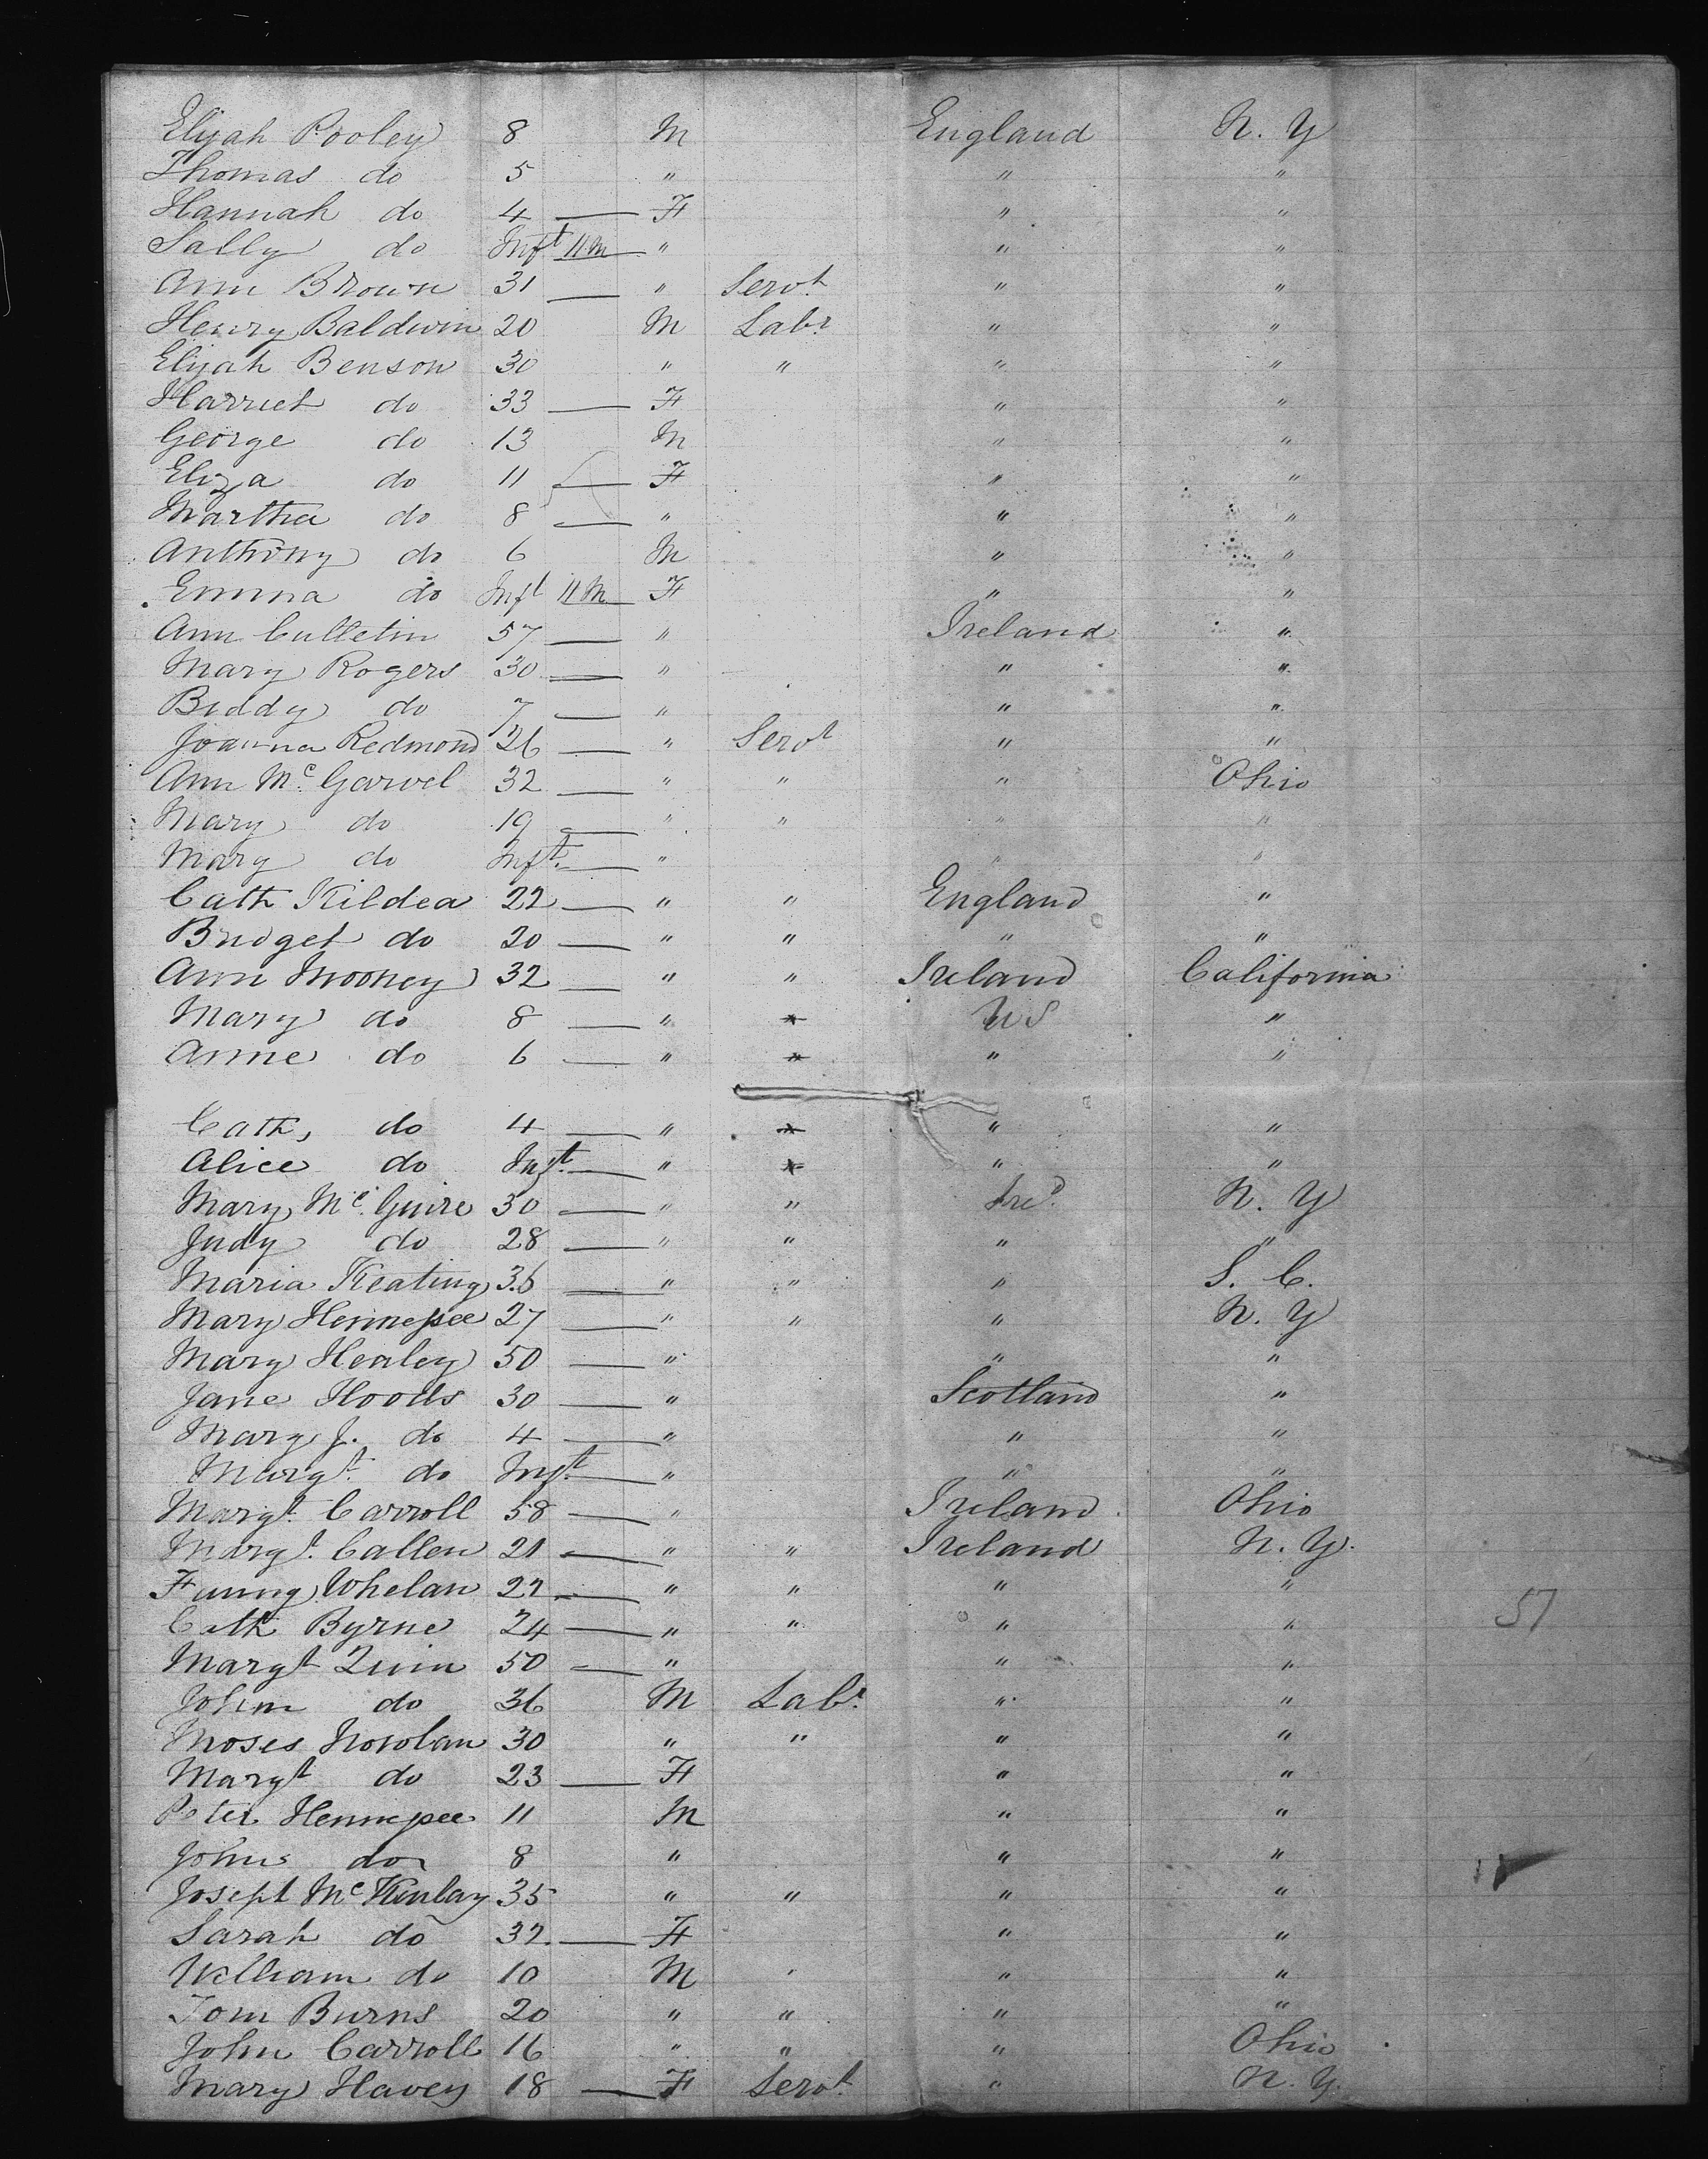 Elijah Pooley 8 M England N. Y
Thomas do 5 " " "
Hannah do 4 — F " "
Sally do Inft 11 M " " "
Ann Brown 31 — " Servt " "
Henry Baldwin 20 M Labr " "
Elijah Benson 30 " " " "
Harriet do 33 — F " "
George do 13 M " "
Eliza do 11 — F " "
Martha do 8 — " " "
Anthony do 6 M " "
Emma do Inft 11 M F " "
Ann Culletin 57 — " Ireland "
Mary Rogers 30 — " " "
Biddy do 7 — " " "
Joanna Redmond 26 — " Servt " "
Ann Mc Garvel 32 — " " " Ohio
Mary do 19 — " " " "
Mary do Inft. — " " "
Cath Kildea 22 — " " England "
Bridget do 20 — " " " "
Ann Mooney 32 — " " Ireland California
Mary do 8 — " U S "
Anne do 6 — " " "
Cath, do 4 — " " "
Alice do Inft. — " " "
Mary Mc Guire 30 — " " Ired. N. Y
Judy do 28 — " " " "
Maria Keating 36 — " " " S. C.
Mary Hennessee 27 — " " " N. Y
Mary Healey 50 — " " "
Jane Hoods 30 — " Scotland "
Mary J. do 4 — " " "
Margt. do Inft. — " " "
Margt. Carroll 58 — " Ireland Ohio
Margt. Callen 21 — " " Ireland N. Y.
Funny Whelan 22 — " " " "
Cath Byrne 24 — " " " " 57
Margt Quin 50 — " " "
John do 36 M Labr. " "
Moses Nowlan 30 " " " "
Margt do 23 — F " "
Peter Hennessee 11 M " "
John do 8 " " "
Joseph Mc Kinlay 35 " " " "
Sarah do 32. — F " "
William do 10 M " "
Tom Burns 20 " " " "
John Carroll 16 " " " Ohio
Mary Havey 18 — F Servt. " N. Y.